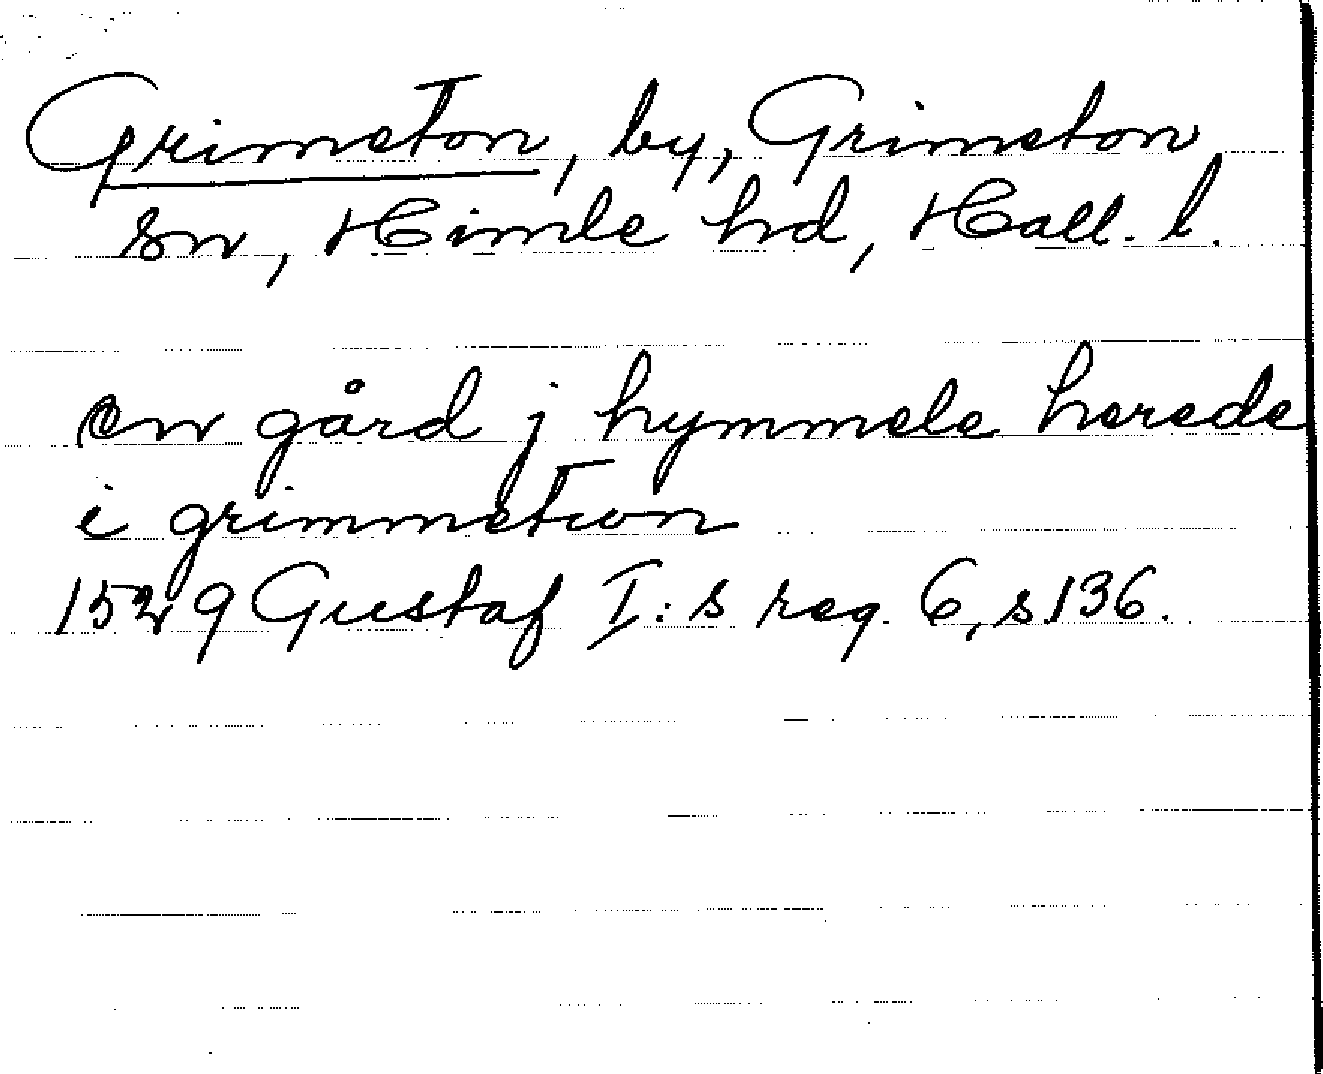 Grimeton, by, Grimeton
sn, Himle hd, Hall. l.
en gård j hymmele herede
i grimmetwn
1529 Gustaf I:s reg. 6, s 136.